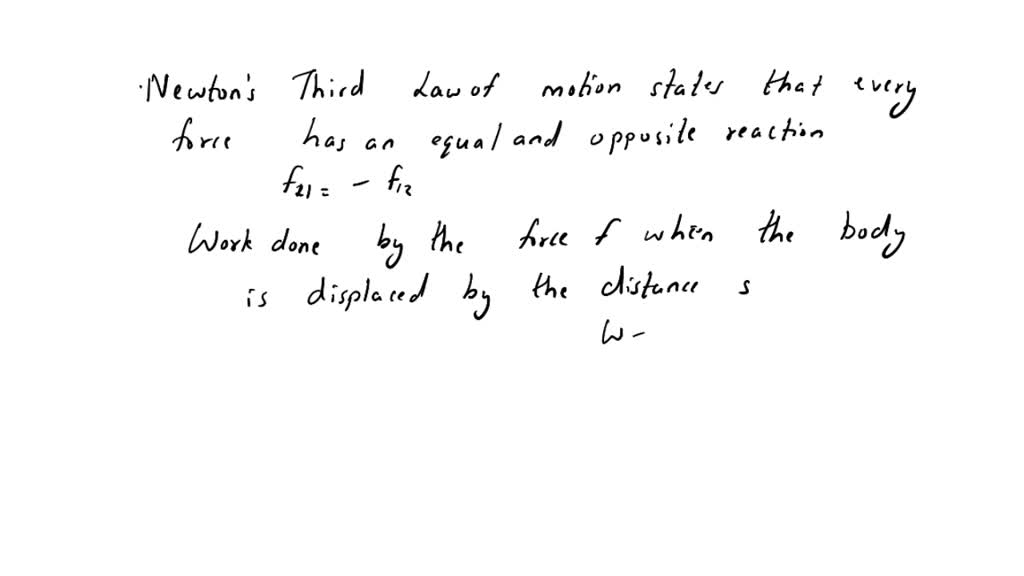 Newton's Third Law of motion states that every
force has an equal and opposite reaction
f21 = - f12
Work done by the force f when the body
is displaced by the distance s
W -